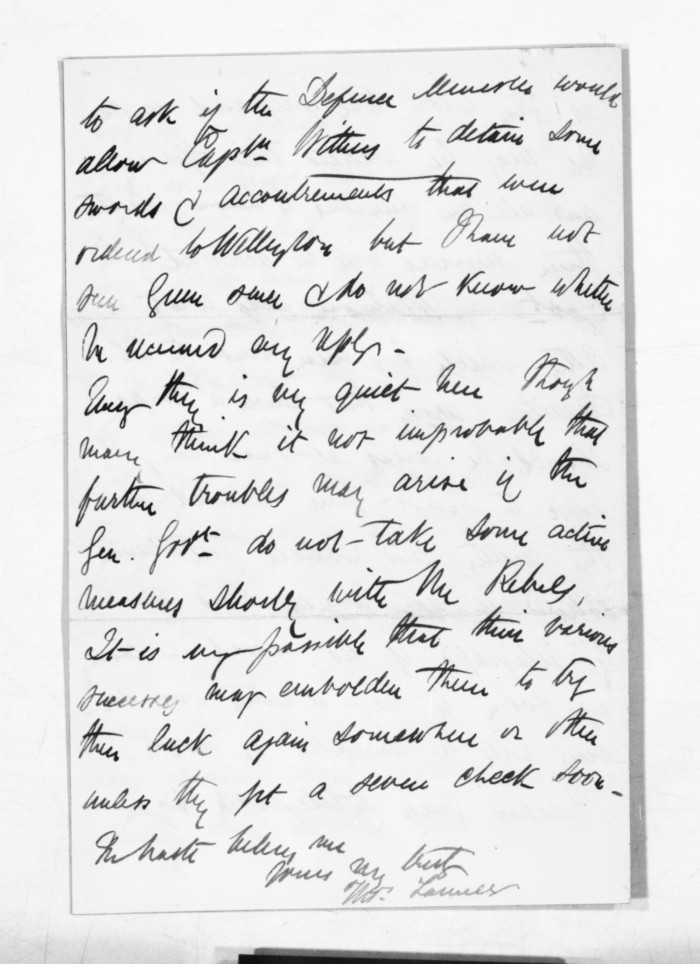 to ask if the Defence Minister would
allow Captn Withers to detain some
swords & accoutrements that were
ordered to Wellington but I have not
seen Green since & do not know whether
he received any reply -
Every thing is very quiet here though
many think it not improbable that
further troubles may arise if the
Gen. Govt do not take some active
measures shortly with the Rebels,
It is very possible that their various
successes may embolden them to try
their luck again somewhere or other
unless they get a severe check soon -
In haste believe me
Yours very truly
Thos. Tanner